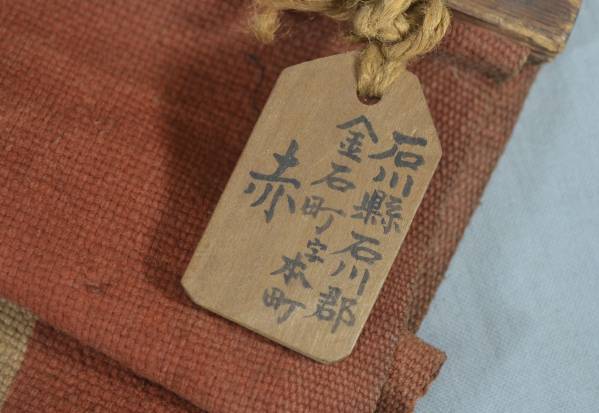 石川縣石川郡
金石町字本町
赤